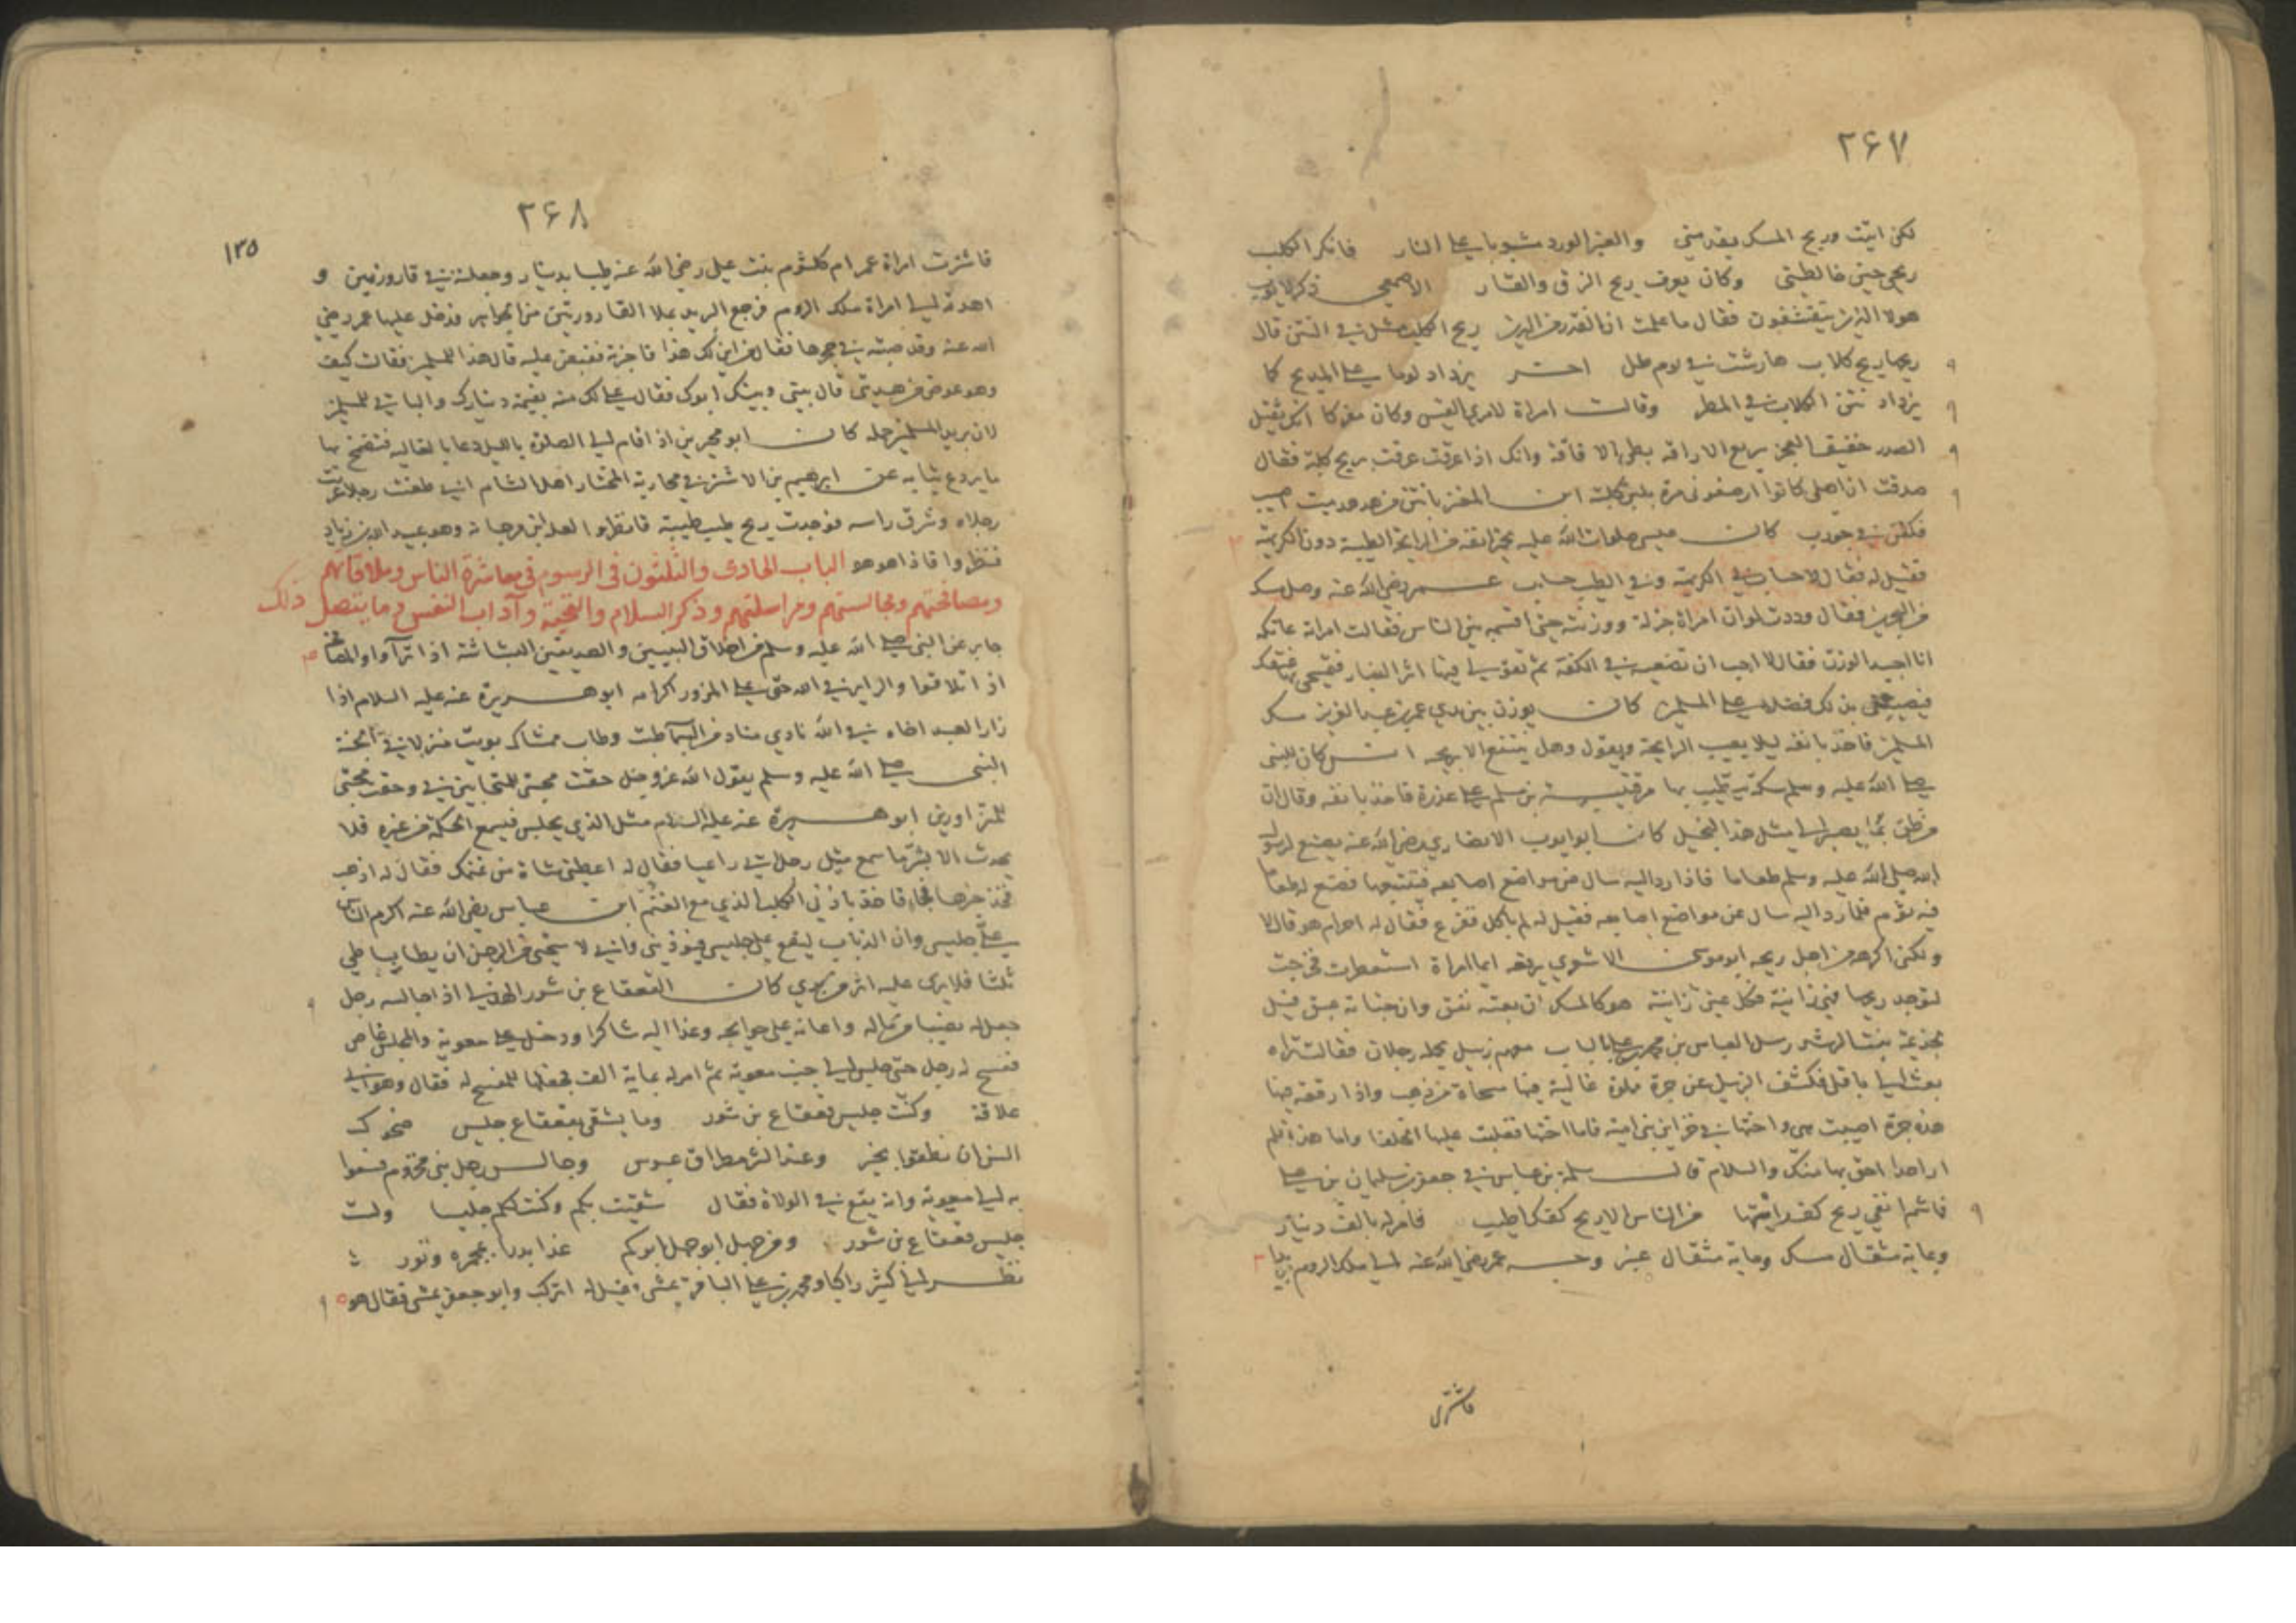 ۲۶۷
لكن اتيت وريح المسك يقدمني والعنبر الورد مشبوبا على النار فانكر الكلب
ريحي حين خالطني وكان يعرف ريح الزق والقار الاصمعي ذكر لايوب
هولا الذين يتقشفون فقال ما علمت ان القذر من الدين ريح الكلب مثل في النتن قال
ريحها ريح كلاب هارشت في يوم طل اخر يزداد لوما على المديح كما
يزداد نتن الكلاب في المطر وقالت امراة لامرئ القيس وكان مفركا انك ثقيل
الصدر خفيف العجز سريع الاراقه بطي الافاقة وانك اذا عرقت عرقت بريح كلبة فقال
صدقت ان اهلي كانوا ارضعوني مرة بلبن كلبة انتن من هدهد ميت اصيب
فكفن في جورب كان عيسى صلوات الله عليه يخمر انفه من الرايحة الطيبة دون الكريهة
فقيل له فقال لا حساب في الكريهة وفي الطيب حساب عمر رضي الله عنه وصل مسك
من البحرين فقال وددت لو ان امراة جزلة ووزنته حتى اقسمه بين الناس فقالت امراته عاتكه
انا اجيد الوزن فقال لا احب ان تضعيه في الكفة ثم تقولي فيها اثر الغبار فتمسحي بها عنقك
فيصيب بذلك فضلا على المسلمين كان يوزن بين يدي عمر بن عبد العزيز مسك
المسلمين فاخذ بانفه ليلا يصيب الرايحة ويقول وهل ينتفع الا بريحه انس كان للنبي
صلى الله عليه وسلم سكة يتطيب بها مر قتيبة بن مسلم على عذرة فاخذ بانفه وقال ان
من ظن بما يصير الى مثل هذا لبخيل كان ابو ايوب الانصاري رضي الله عنه يصنع لرسول
الله صلى الله عليه وسلم طعاما فاذا رد اليه سال عن مواضع اصابعه فيتتبعها فصنع له طعاما
فيه ثوم فلما رد اليه سال عن مواضع اصابعه فقيل له لم ياكل ففزع فقال له احرام هو قال لا
ولكن اكرهه من اجل ريحه ابو موسى الاشعري يرفعه ايما امراة استعطرت فخرجت
ليوجد ريحها فهي زانية وكل عين زانية هو كالمسك ان بعته نفق وان خبأته عبق قيل
بنت الرشيد رسل العباس بن محمد بن علي بالباب معهم زبيل يحمله رجلان فقالت تراه
بعث الي باقلى فكشف الزبيل عن جرة مملوة غالية فيها مسحاة من ذهب واذا رقعة فيها
هذه جرة اصيبت هي واختها في خزاين بني امية فاما اختها فغلبت عليها الخلفا واما هذه فلم
ار احدا احق بها منك والسلام قال سلمة بن عياش في جعفر بن سليمان بن علي
فاشم انفي ريح كف شممتها من الناس الا ريح كفك اطيب فامر له بالف دينار
وبماية مثقال مسك وماية مثقال عنبر وجه عمر رضي الله عنه الى ملك الروم بريدا
فاشترت
۲۶۸
۱۳۵
فاشترت امراة عمر ام كلثوم بنت علي رضي الله عنه طيبا بدينار وجعلته في قارورتين و
اهدته الى امراة ملك الروم فرجع البريد بملا القارورتين من الجواهر فدخل عليها عمر رضي
الله عنه وقد صبته في حجرها فقال من اين لك هذا فاخبرته فقبض عليه قال هذا للمسلمين فقالت كيف
وهو عوض من هديتي قال بيني وبينك ابوك فقال علي لك منه بقيمة دينارك والباقي للمسلمين
لان بريد المسلمين حمله كان ابو محيريز اذا قام الى الصلوة بالليل دعا بالغاليه فتضمخ بها
ما يردع ثيابه عن ابرهيم بن الاشتر في محاربة المختار اهل الشام اني طعنت رجلا
رجلاه وشرق راسه فوجدت ريح طيب طيبة فانظروا لعله ابن مرجانة وهو عبيد الله بن زياد
فنظروا فاذا هو هو الباب الحادى والثلثون فى الرسوم فى معاشرة الناس وملاقاتهم
ومصافحتهم ومجالستهم ومراسلتهم وذكر السلام والتحية وآداب النفس وما يتصل ذلك
جابر عن النبي صلى الله عليه وسلم من اخلاق النبيين والصديقين البشاشة اذا تراوا والمصافحة
اذا تلاقوا والزاير في الله حق على المزور اكرامه ابو هريرة عنه عليه السلام اذا
زار العبد اخاه في الله نادى مناد من السما طبت وطاب ممشاك بويت منزلا في الجنة
النبى صلى الله عليه وسلم يقول الله عز وجل حقت محبتى للمتحابين في وحقت محبتى
للمتزاورين ابو هريرة عنه عليه السلام مثل الذي يجلس فيسمع الحكمة من غيره فلا
يحدث الا بشر ما سمع مثل رجل اتى راعيا فقال له اعطني شاة من غنمك فقال له اذهب
فخذ خيرها فجاء فاخذ باذن الكلب الذي مع الغنم ابن عباس رضي الله عنه اكرم الناس
علي جليسي وان الذباب ليقع على جليسي فيؤذيني واني لا ستحيي من الرجل ان يطأ بساطي
ثلثا فلا يرى عليه اثر من يدي كان القعقاع بن شور الهذلي اذا جالسه رجل
جعل له نصيبا من ماله واعانه على حوايجه وغدا اليه شاكرا ودخل على معوية والمجلس غاص
ففسح له رجل حتى جلس الى جنب معوية ثم امر له بماية الف فجعلها للمفسح له فقال
وكنت جليس قعقاع بن شور وما يشقى بقعقاع جليس ضحوك
السن ان نطقوا بخير وعند الشر مطراق عبوس وجالس رجل بني مخزوم فسعوا
به الى معوية وانه يقع في الولاة فقال شقيت بكم وكنت لكم جليسا ولست
جليس قعقاع بن شور ومن جهل ابو جهل ابوكم غزا بدرا بمجمرة وتور
نظر الى كثير راكبا ومحمد بن علي الباقر يمشى فقيل له اتركب وابو جعفر يمشى فقال هو